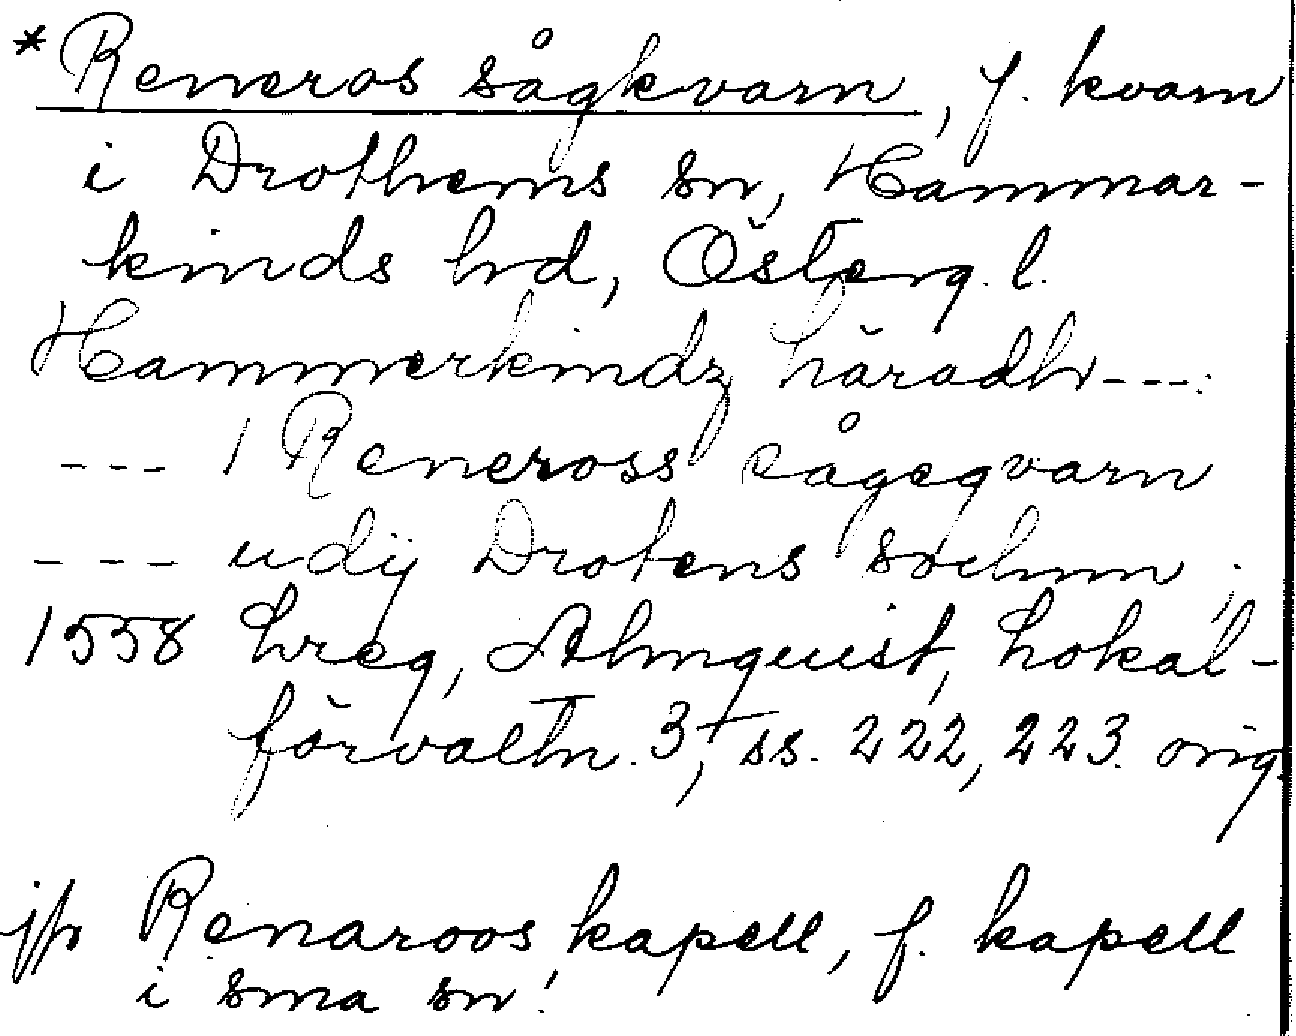 *Reneros sågkvarn, f. kvarn
i Drothems sn, Hammar-
kinds hd, Österg. l.
Hammerkindz häradh---:
--- 1 Reneross sågeqvarn
--- udij Drotens sochnn;
1558 hreg, Almquist, Lokal-
förvaltn. 3, ss. 222, 223. orig.
jfr Renaroos kapell, f. kapell
i sma sn!